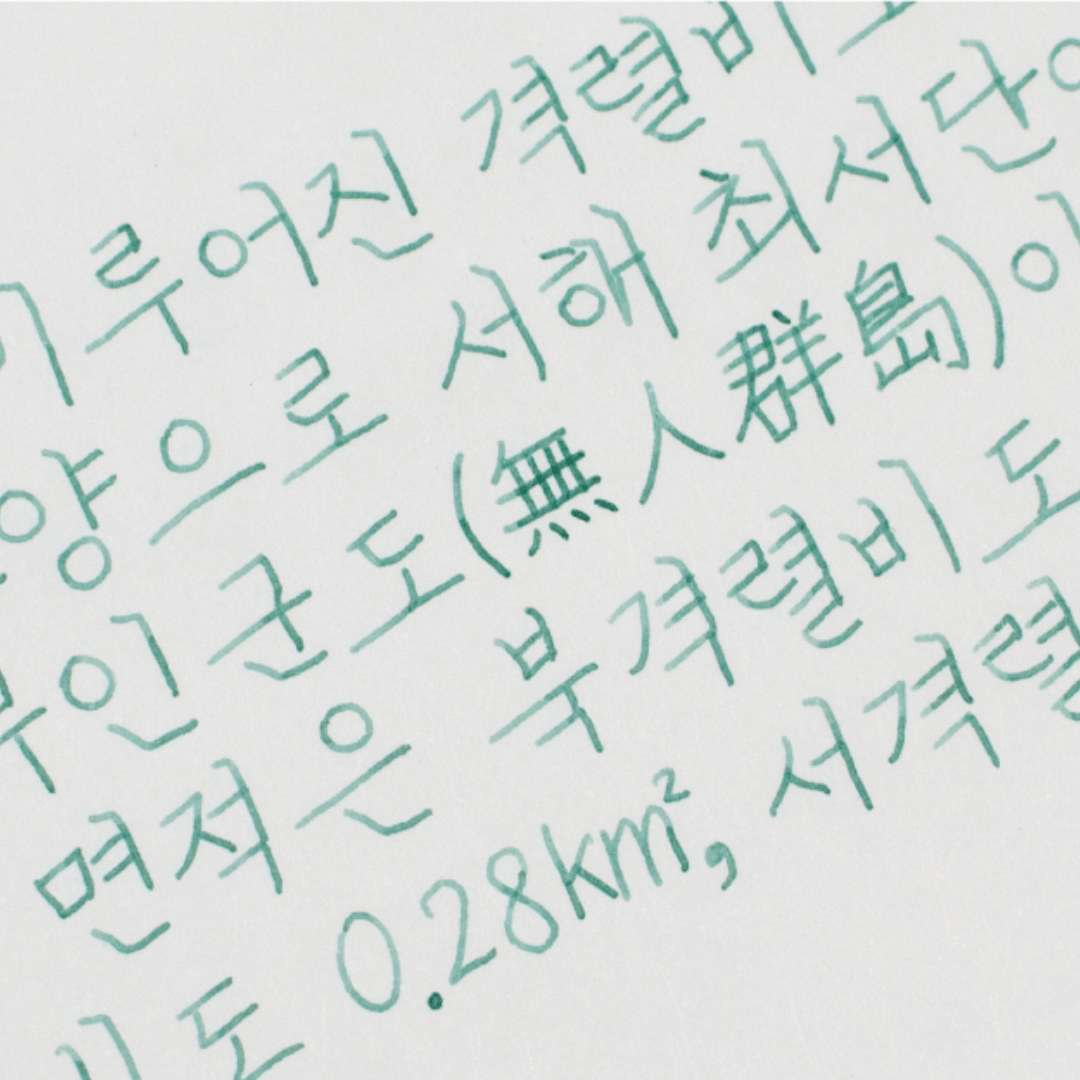 루어진 격렬비
양으로 서해 최서단
인 군도(無人群島)
면적은 북격렬비도
도 0.28km², 서격렬